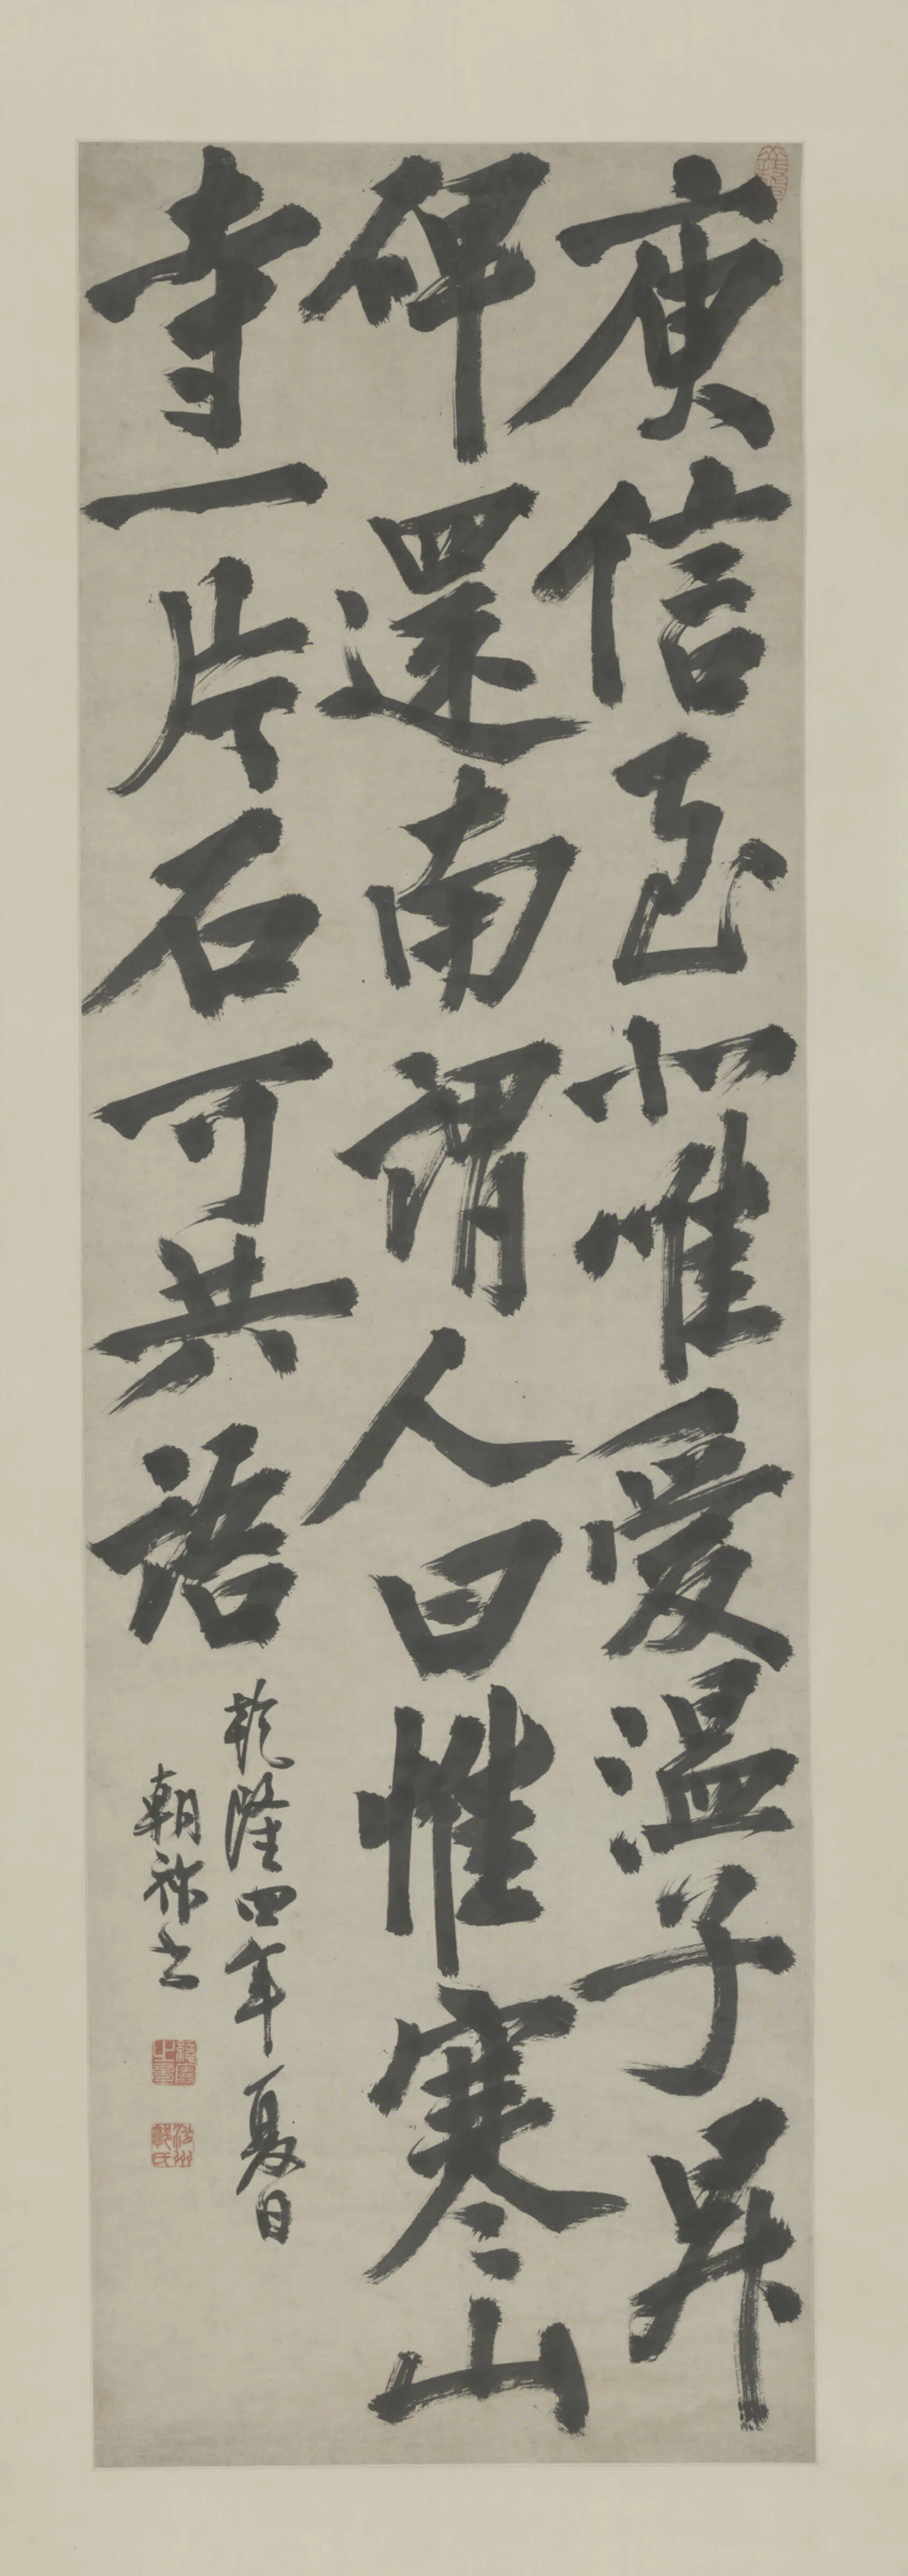 庾信至北唯愛溫子昇
碑還南謂人曰惟寒山
寺一片石可共語
乾隆四年夏日
朝祚書